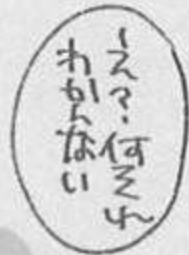 えー?何それ
わかんない